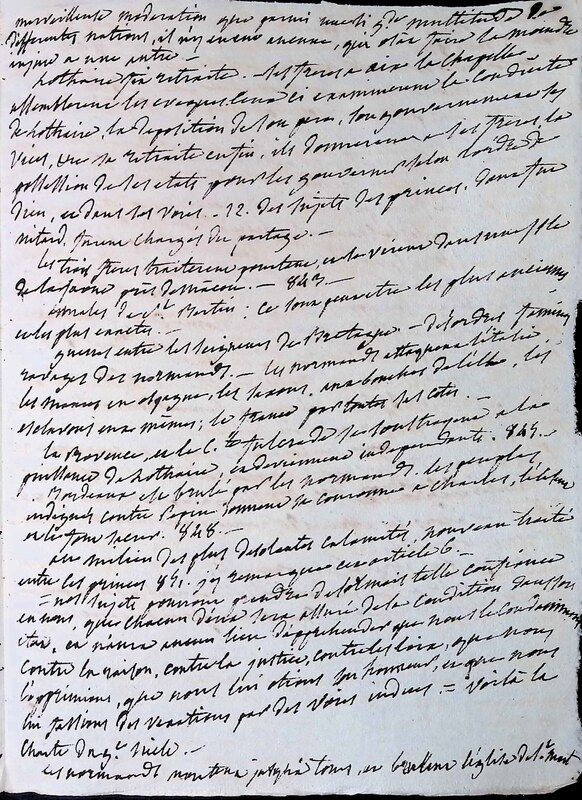 merveilleuse modération que parmi une si gde multitude de
differentes nations, il n'y en eut aucune, qui osât faire la moindre
injure a une autre. —
Lothaire fit retraite. — ses freres a aix la Chapelle
assemblerent les eveques, ceux ci examinerent la Conduite
de Lothaire, la deposition de son pere, son gouvernement, ses
vices, sa retraite enfin, ils donnerent a ses freres, la
possession de ses etats pour les gouverner selon l'ordre de
Dieu, et dans ses voies. — 12. des sujets des princes, dont fut
nitard, furent chargés du partage. —
les trois freres traiterent pourtant, et se virent dans une isle
de la saone près de macon. — 843 —
annales de St Bertin; ce sont peut etre les plus anciennes
et les plus exactes. —
guerres entre les seigneurs de Bretagne. — désordres, famines
ravages des normands. — les normands attaquent l'italie,
les maures en espagne, les saxons, aux bouches de l'elbe, les
esclavons eux mêmes; la france par toutes ses cotes. —
la Provence, et le Cte fulcrade se soustrayent a la
puissance de Lothaire, et deviennent independants. 845. —
Bordeaux est brulé par les normands. les peuples
indignés contre Pepin donnent sa couronne a Charles, l'elisent
et le font sacrer. 848. —
au milieu des plus desolantes calamités, nouveau traité
entre les princes 851. j'y remarque cet article 6 —
= nos sujets pourront prendre desormais telle confiance
en nous, que chacun d'eux sera assuré de la condition dans son
etat, et n'aura aucun lieu d'apprehender que nous le condamnions
contre la raison, contre la justice, contre les loix, que nous
l'opprimions, que nous lui otions son honneur, et que nous
lui fassions des vexations par des voies indues = voilà la
charte du 9e siècle. —
les normands montent jusqu'a tours, et brulent l'église de St mart